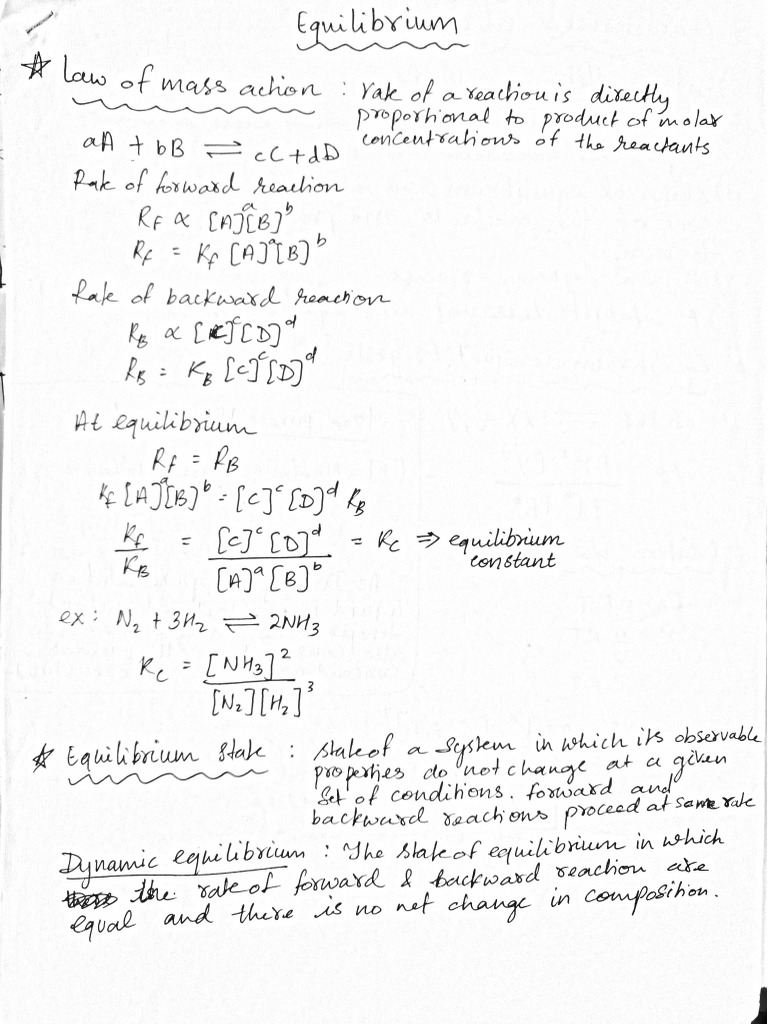 Equilibrium
☆ Law of mass action : rate of a reaction is directly
proportional to product of molar
concentrations of the reactants
aA + bB ⇌ cC + dD
Rate of forward reaction
R_F ∝ [A]^a [B]^b
R_f = K_f [A]^a [B]^b
Rate of backward reaction
R_B ∝ [C]^c [D]^d
R_B = K_B [C]^c [D]^d
At equilibrium
R_f = R_B
K_f [A]^a [B]^b = [C]^c [D]^d K_B
K_f / K_B = [C]^c [D]^d / [A]^a [B]^b = K_c ⇒ equilibrium
constant
ex: N₂ + 3H₂ ⇌ 2NH₃
K_c = [NH₃]² / [N₂] [H₂]³
☆ Equilibrium State : state of a system in which its observable
properties do not change at a given
set of conditions. forward and
backward reactions proceed at same rate
Dynamic equilibrium : The state of equilibrium in which
the rate of forward & backward reaction are
equal and there is no net change in composition.